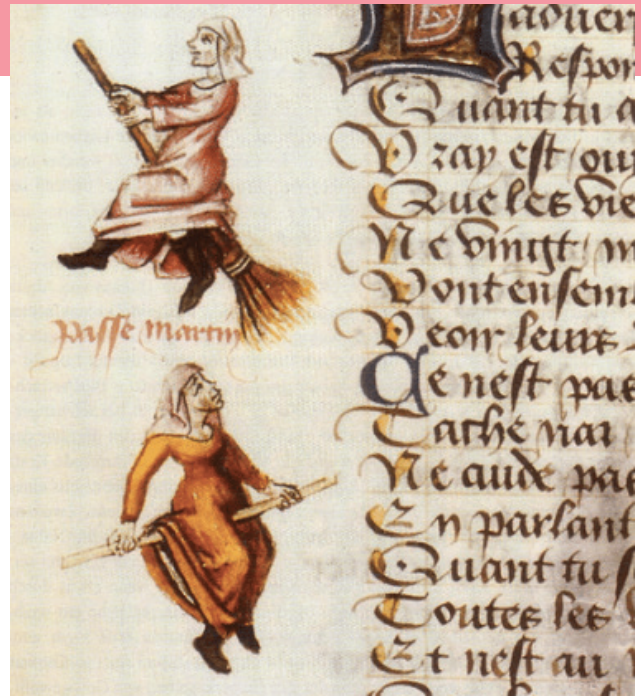 passe martin
Respon
Quant tu a
Vray est / ou
Que les vie
Ne vingt / m
Vont ensem
Veoir leurs
Ce nest pas
Tache
Ne cuide pas
En parlant
Quant tu
Toutes les
Et nest au